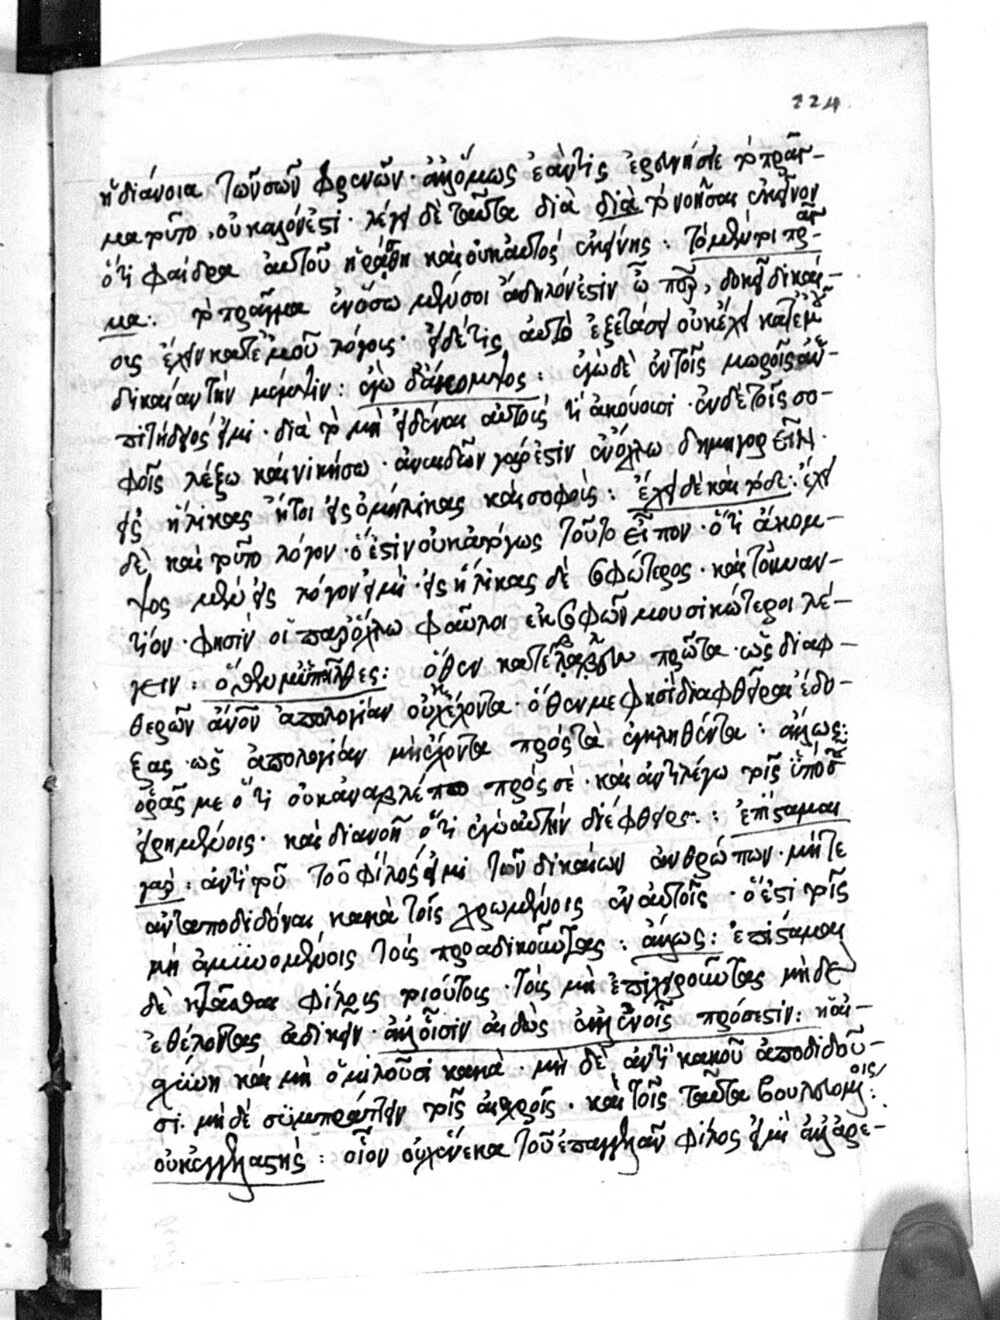 224
ἡ διάνοια τῶν σῶν φρενῶν· ἀλλ' ὅμως ἐὰν τὶς ἐρωτήσῃ τὸ πρᾶγ-
μα τοῦτο, οὐ καλόν ἐστι· λέγει δὲ ταῦτα διὰ διὰ τὸ νοῆσαι ἐκεῖνον
ὅτι φαίδρα αὐτοῦ ἠράσθη καὶ οὐκ αὐτὸς ἐκείνης: τὸ μέντοι πρᾶγ-
μα: τὸ πρᾶγμα ἐν ὅσῳ μέν σοι ἄδηλόν ἐστιν ὦ πάτερ, δοκεῖ δικαί-
οις ἔχειν κατ' ἐμοῦ λόγοις· εἰ δέ τις αὐτὸ ἐξετάσει οὐκ ἔχει κατ' ἐμοῦ
δικαίαν τὴν μέμψιν: ἐγὼ δ' ἄκομψος: ἐγὼ δὲ ἐν τοῖς μωροῖς ἀν-
επιτήδειός εἰμι· διὰ τὸ μὴ εἰδέναι αὐτοὺς τί ἀκούουσι· ἐν δὲ τοῖς σο-
φοῖς λέξω καὶ νικήσω· ἀναιδῶν γάρ ἐστιν ἐν ὄχλῳ δημηγορεῖν·
εἰς ἥλικας ἤτοι εἰς ὁμήλικας καὶ σοφούς: ἔχει δὲ καὶ τόδε: ἔχει
δὲ καὶ τοῦτο λόγον· ὅ ἐστιν οὐκ ἀργῶς τοῦτο εἶπον· ὅτι ἄκομ-
ψος μὲν εἰς λόγον εἰμὶ· εἰς ἥλικας δὲ σοφώτερος· καὶ τοὐναν-
τίον· φησὶν οἱ παρ' ὄχλῳ φαῦλοι ἐκ σοφῶν μουσικώτεροι λέ-
γειν: ὅθεν μ' ὑπῆλθες: ὅθεν κατέλαβες πρῶτα· ὡς διαφ-
θερῶν ἄνουν ἀπολογίαν οὐκ ἔχοντα· ὅθεν με φησὶ διαφθεῖραι ἔδο-
ξας ὡς ἀπολογίαν μὴ ἔχοντα πρὸς τὰ ἐγκληθέντα: ἄλλως:
ὁρᾷς με ὅτι οὐκ ἀναβλέπω πρός σέ· καὶ ἀντιλέγω τοῖς ὑπὸ σοῦ
εἰρημένοις· καὶ διανοῇ ὅτι ἐγὼ αὐτὴν διέφθειρα: ἐπίσταμαι
γάρ: ἀντὶ τοῦ τοῦ φίλος εἰμὶ τῶν δικαίων ἀνθρώπων· μήτε
ἀνταποδιδόναι κακὰ τοῖς χρωμένοις ἐν αὐτοῖς· ὅ ἐστι τοῖς
μὴ ἀμυνομένοις τοὺς προαδικοῦντας: ἄλλως: ἐπίσταμαι
δὲ κτᾶσθαι φίλους τοιούτους· τοὺς μὴ ἐπιχειροῦντας μηδὲ
ἐθέλοντας ἀδικεῖν· ἀλλ' οἷσιν αἰδὼς ἀλλ' ἐν οἷς πρόσεστιν: ἡ αἰ-
σχύνη καὶ μὴ ὁμιλοῦσι κακὰ· μὴ δὲ ἀντὶ κακοῦ ἀποδιδοῦ-
σι· μὴ δὲ συμπράττειν τοῖς αἰσχροῖς· καὶ τοῖς ταῦτα βουλομένοις:
οὐκ ἐγγελαστής: οἷον οὐχ ἕνεκα τοῦ ἐπαγγελᾶν φίλος εἰμὶ ἀλλ' ἀρε-